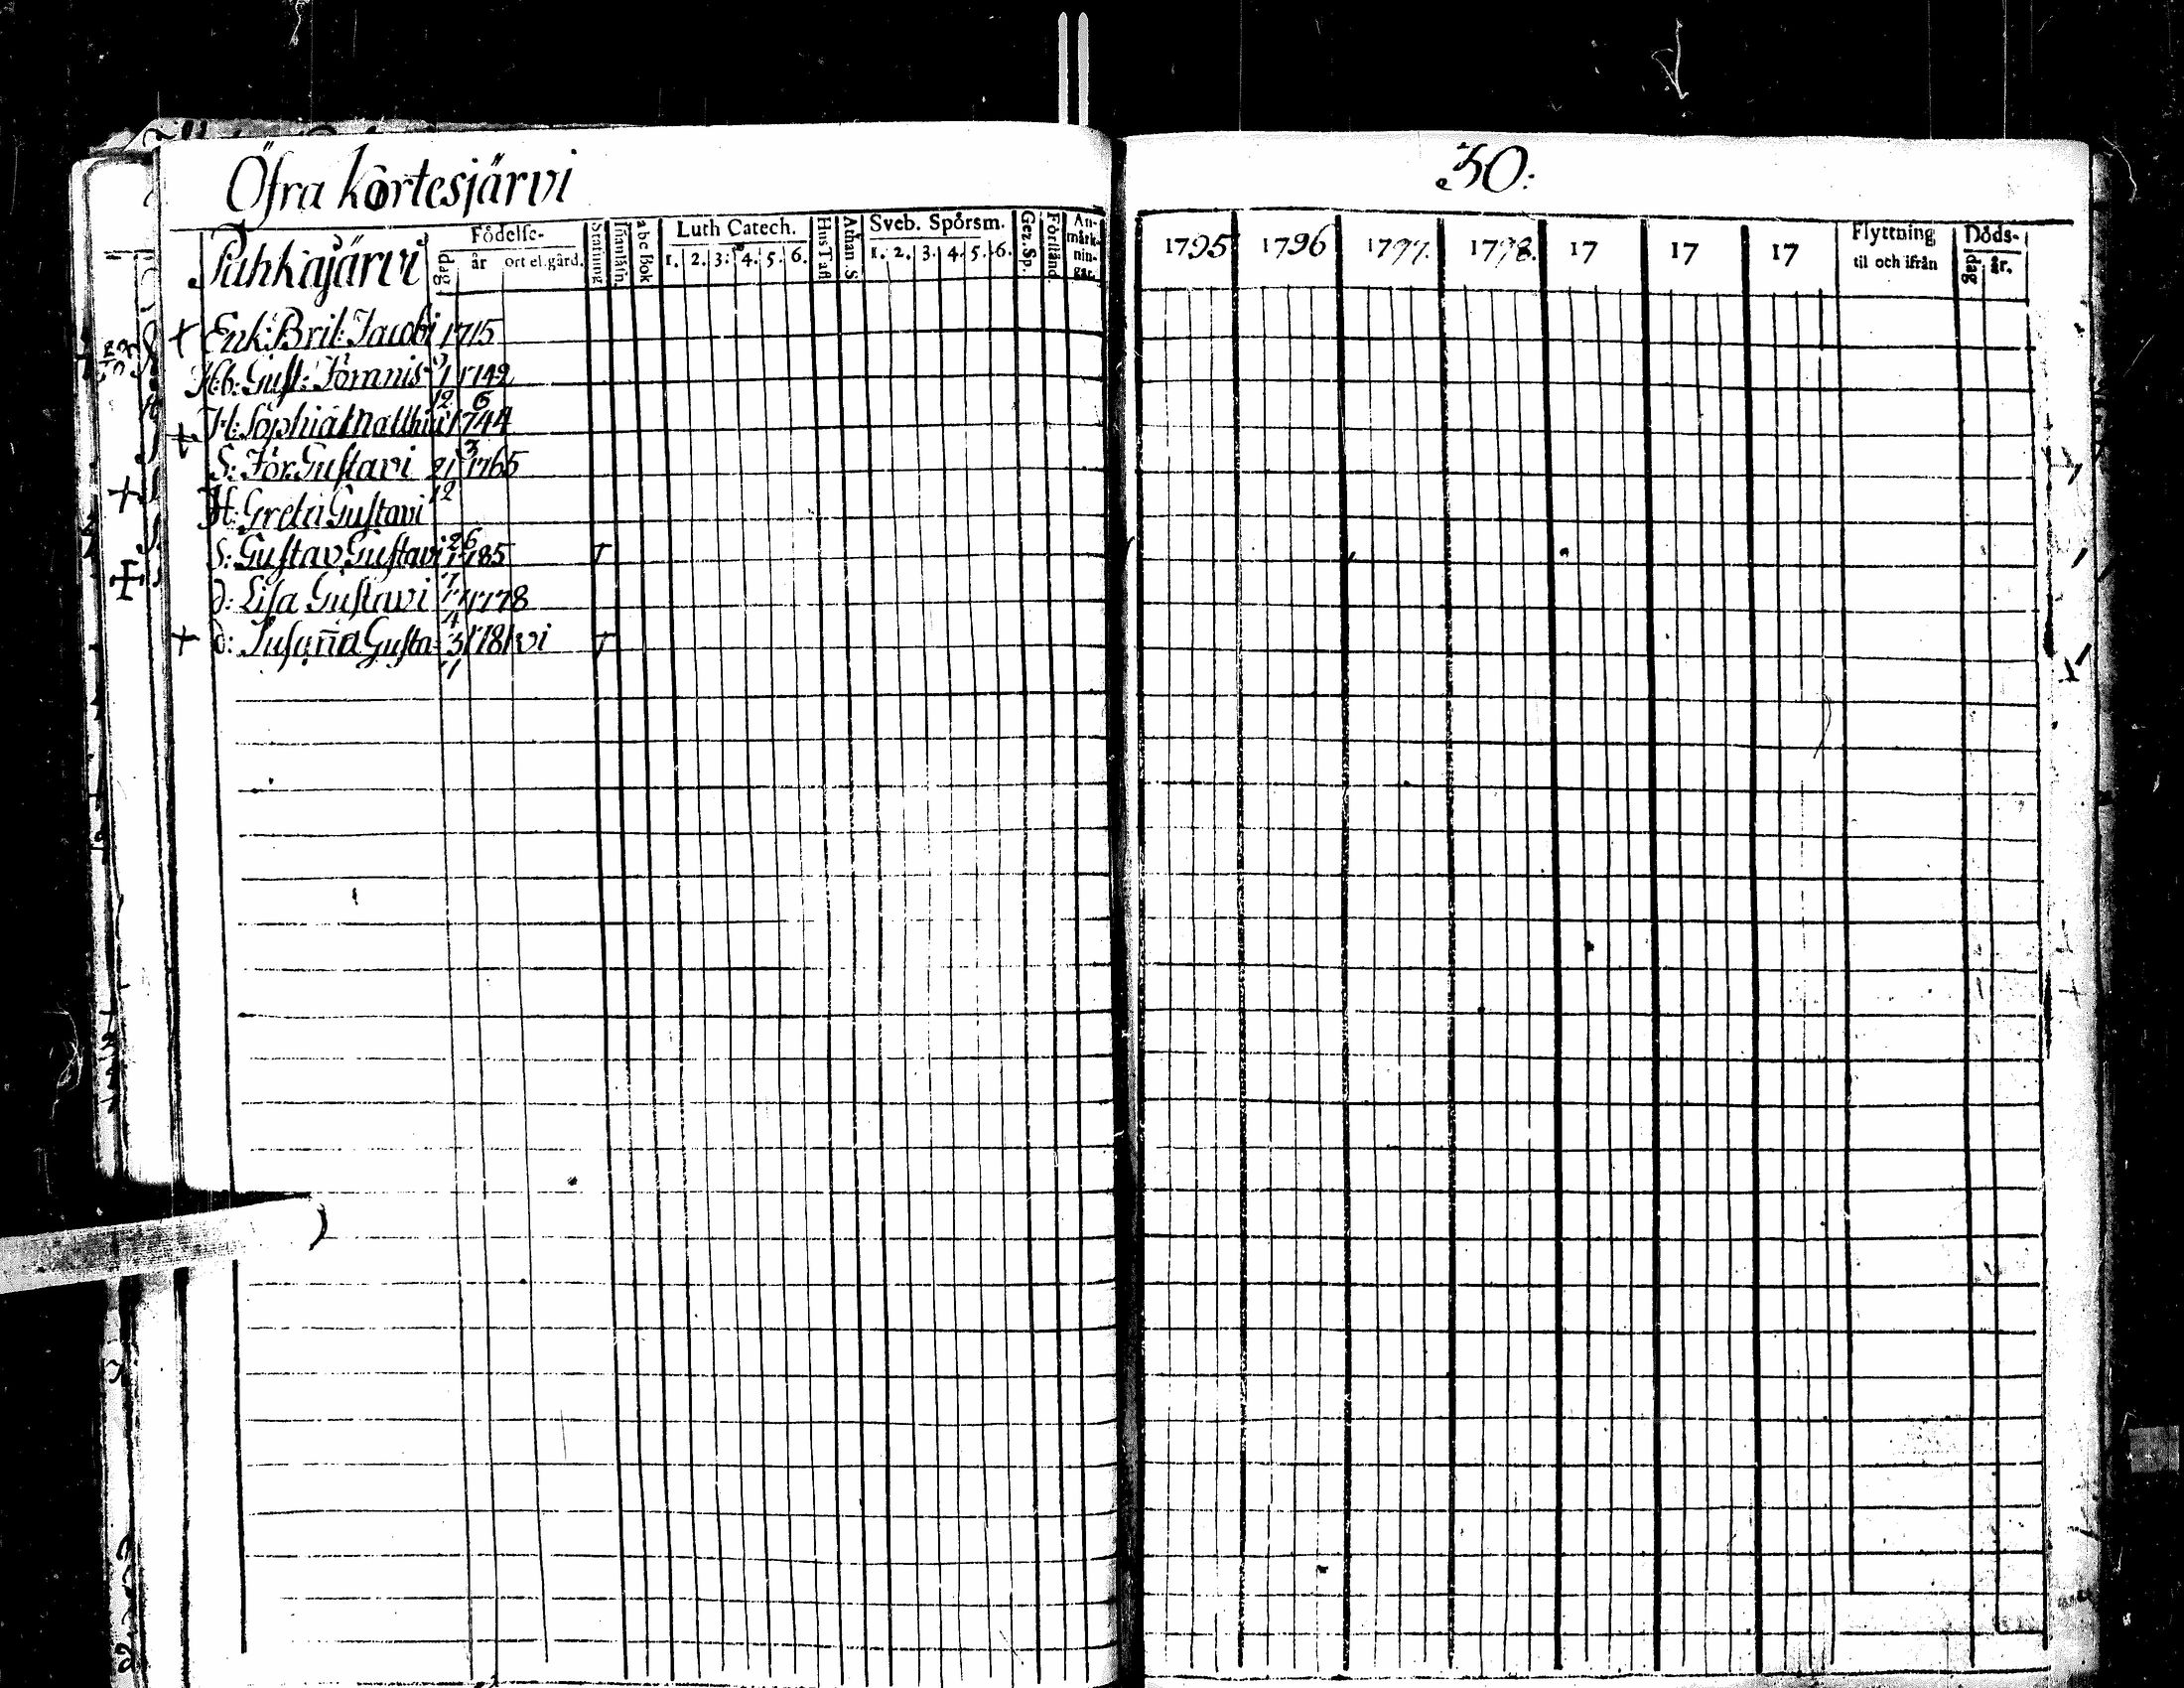 Öfra körtesjärvi
30:
Puhkajärvi
Födelse-
dag
år
ort el. gård.
abc Bok
Luth Catech.
1. 2. 3. 4. 5. 6.
Hus Tafl
Athan. S.
Sveb. Spörsm.
1. 2. 3. 4. 5. 6.
Gez. Sp.
Förstånd.
An-
märk-
nin-
gar.
1795 1796 1797. 1798. 17 17 17
Flyttning
til och ifrån
Döds-
dag
år.
+ Enk: Brit: Jacobi 1715
Gust:
+ H: Sophia Matthiæ 1744
S: Jör. Gustavi 21/12 1765
H: Greta Gustavi
S: Gustav Gustavi 26/7 1785
d: Lisa Gustavi 1778
+ d: Susaña Gusta= 3 1781 vi